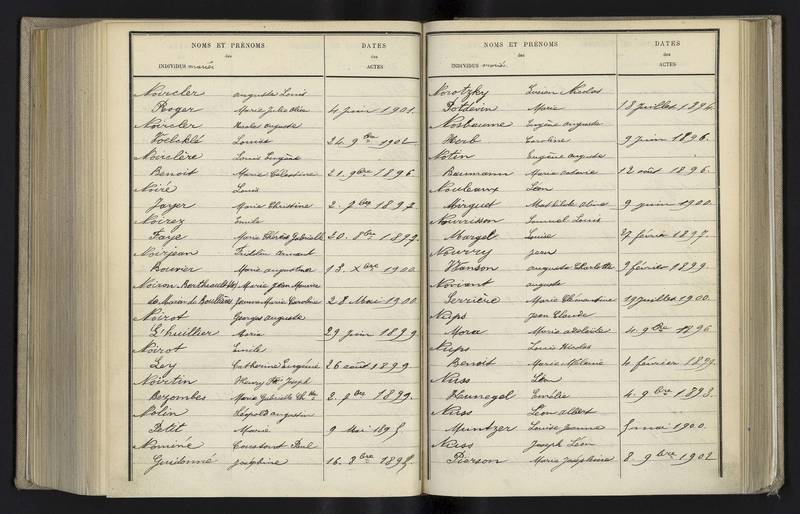 NOMS ET PRÉNOMS
des
INDIVIDUS mariés
DATES
des
ACTES
Noircler auguste Louis
Roger Marie Jules Alice 4 juin 1901.
Noircler Nicolas auguste
Voelcklé Louise 24. 9bre 1902
Noirclère Louis Eugène
Benoit Marie Célestine 21. 9bre 1896
Noiré Louis
Jayer Marie Christine 2. 9bre 1897
Noirez Emile
Faye Marie Gabrielle 20. 8bre 1899.
Noirjean armant
Bouvier Marie augustine 13. Xbre 1900.
Marie Jean Maurice
Jeanne Marie Caroline 28 Mai 1900
Noirot Georges auguste
L'huillier Maria 29 juin 1899.
Noirot Emile
Ley Catherine Eugénie 26 août 1899.
Noirtin Henry Joseph
Bezombes Marie Gabrielle 2. 9bre 1899.
Nolin Léopold augustin
Petit Marie 9 Mai 1895.
Nominé Toussaint Paul
Guidonné Joséphine 16. 8bre 1895.
NOMS ET PRÉNOMS
des
INDIVIDUS mariés
DATES
des
ACTES
Norotzky Lucien Nicolas
Potdevin Marie 18 juillet 1894
Nosbaume Eugène auguste
Herb Caroline 9 juin 1896.
Notin Eugène auguste
Baumann Marie 12 août 1896.
Nouleaux Léon
Mirguet Mathilde Aline 9 juin 1900.
Nourrisson Samuel Louis
Margel Louise 27 février 1897.
Nourry Jean
Hanson augusta Charlotte 9 février 1899
Noviant auguste
Serrière Marie Clémentine 17 juillet 1900.
Nups Jean Claude
Mora Marie adelaïde 4. 9bre 1896
Nups Louis Nicolas
Benoit Marie Mélanie 4 février 1899.
Nuss Léon
Haunegel Emélie 4. 9bre 1893.
Nuss Léon albert
Muntzer Louise Jeanne 5 mai 1900.
Nuss Joseph Léon
Pierson Marie Joséphine 8. 9bre 1902